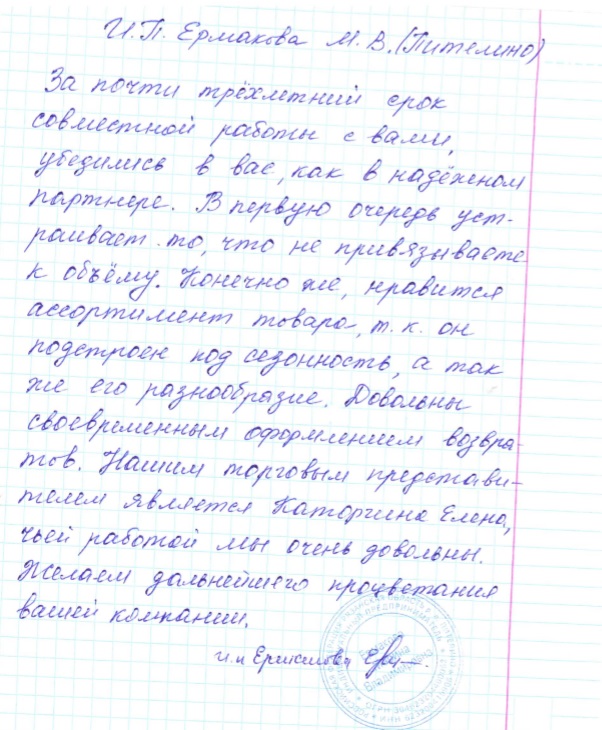 И.П. Ермакова М.В. (Пителино)
За почти трёхлетний срок
совместной работы с вами,
убедились в вас, как в надёжном
партнере. В первую очередь уст-
раивает то, что не привязываете
к объёму. Конечно же, нравится
ассортимент товара, т.к. он
подстроен под сезонность, а так
же его разнообразие. Довольны
своевременным оформлением возвра-
тов. Нашим торговым представи-
телем является Каторгина Елена,
чьей работой мы очень довольны.
Желаем дальнейшего процветания
вашей компании.
и.п Ермакова